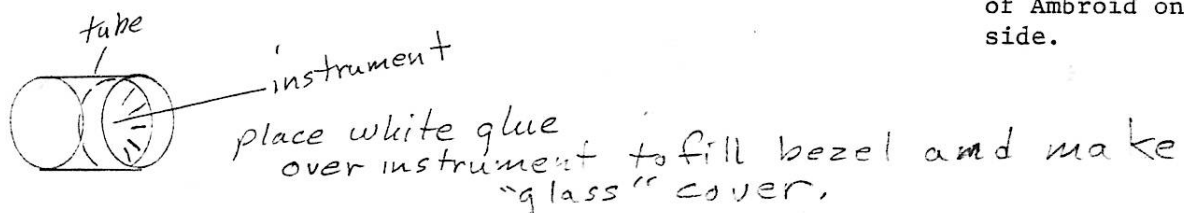 of Ambroid on
side.
tube
instrument
place white glue
over instrument to fill bezel and make
"glass" cover.